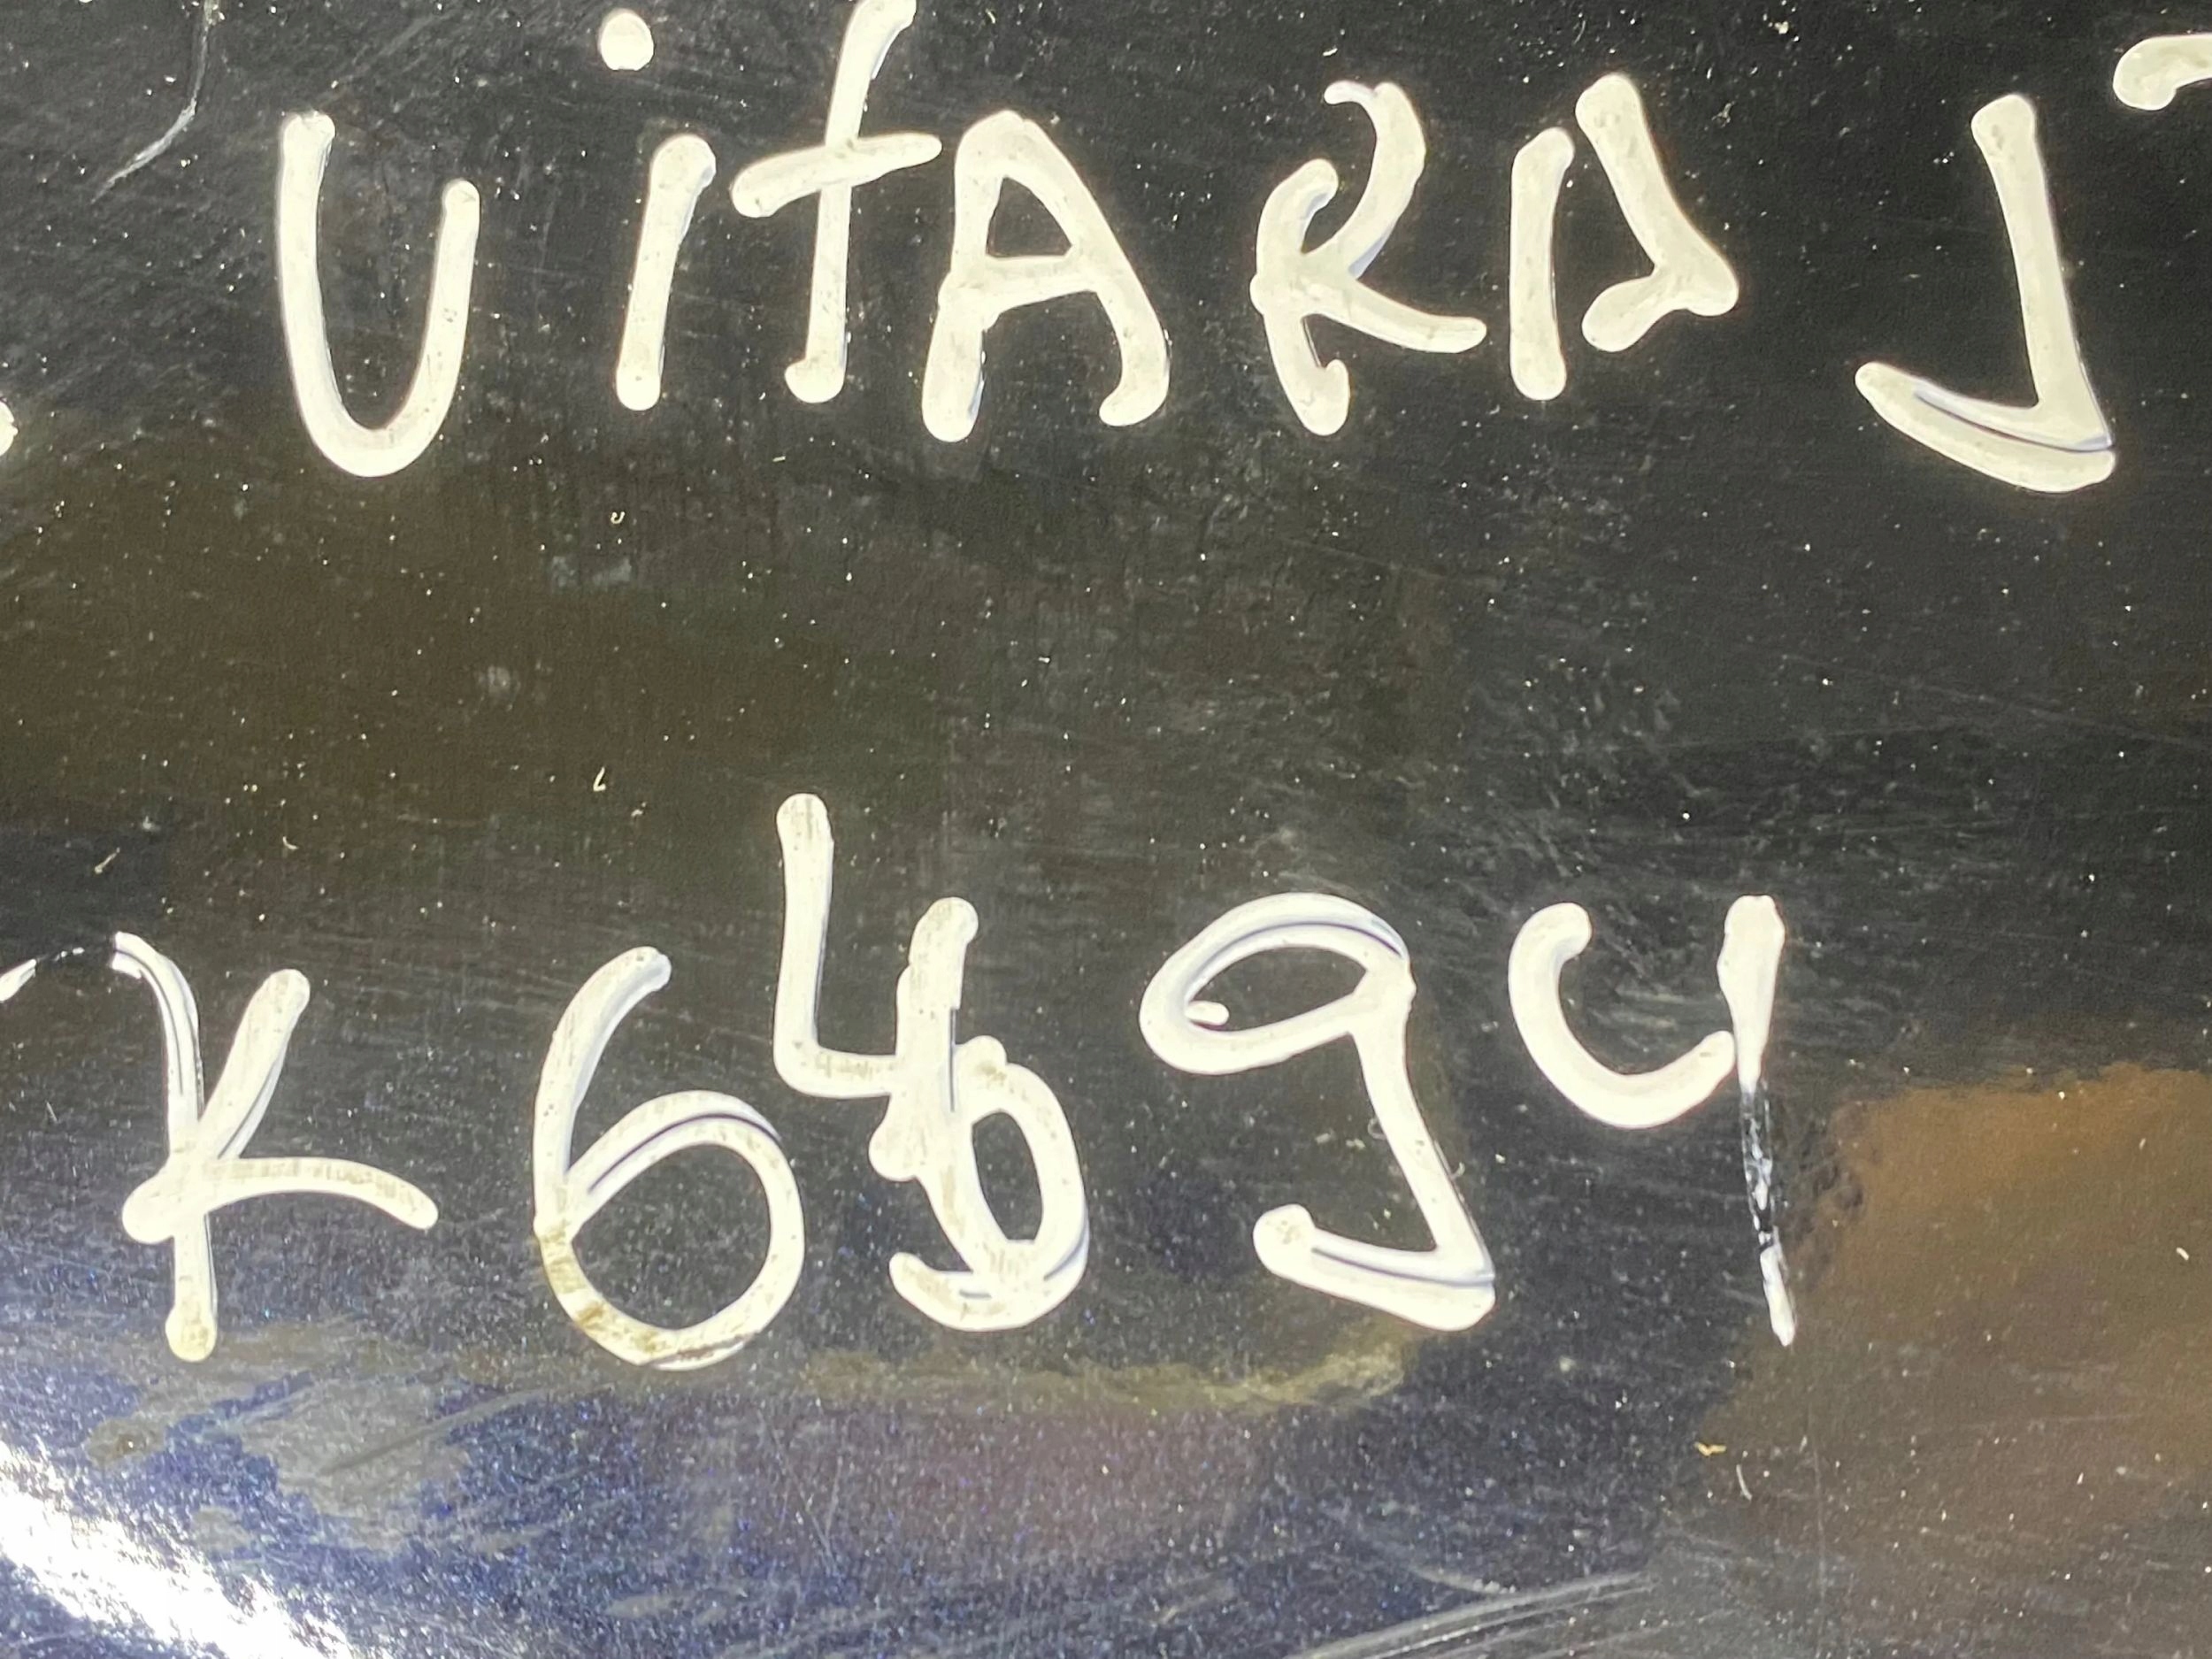 UitARA J
K6494